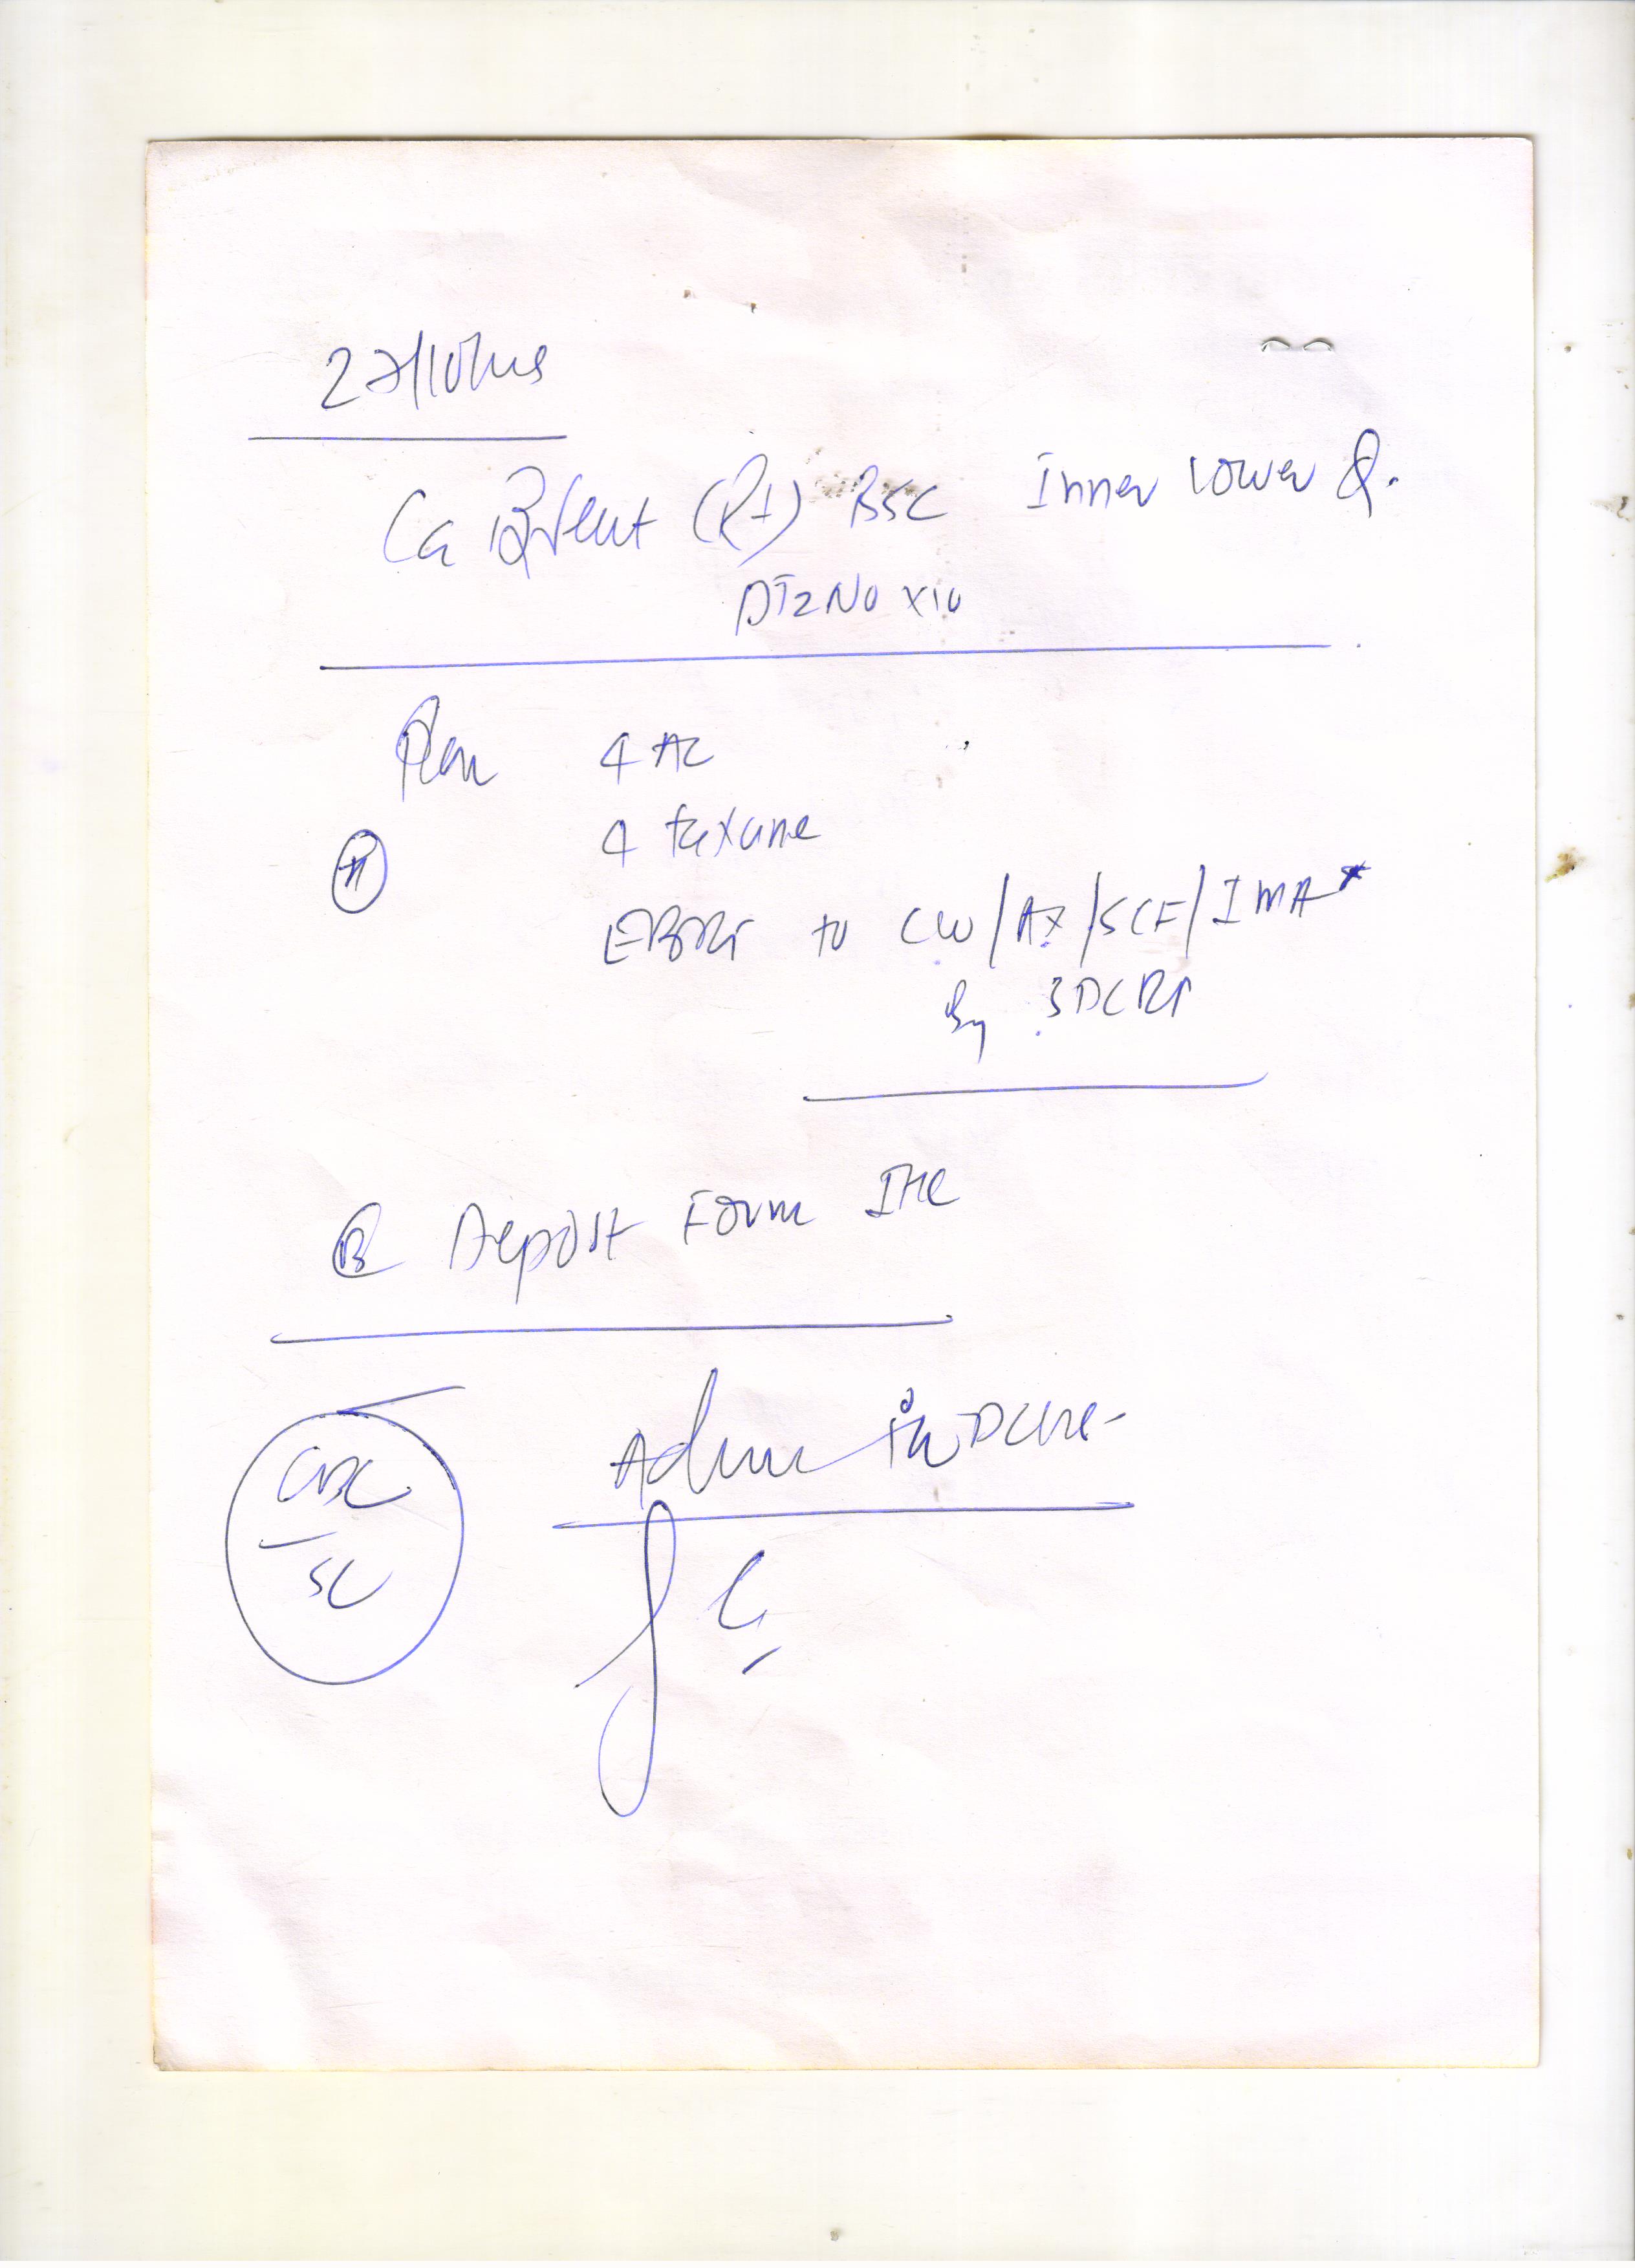 Ca Breast (Rt) BSC Inner lower Q.
pT2N0 x10
Plan 4 AC
4 taxane
(A) EBRT to CW/AX/SCF/IMA*
By 3DCRT
(B) Deposit Form IHC
CBC
SC